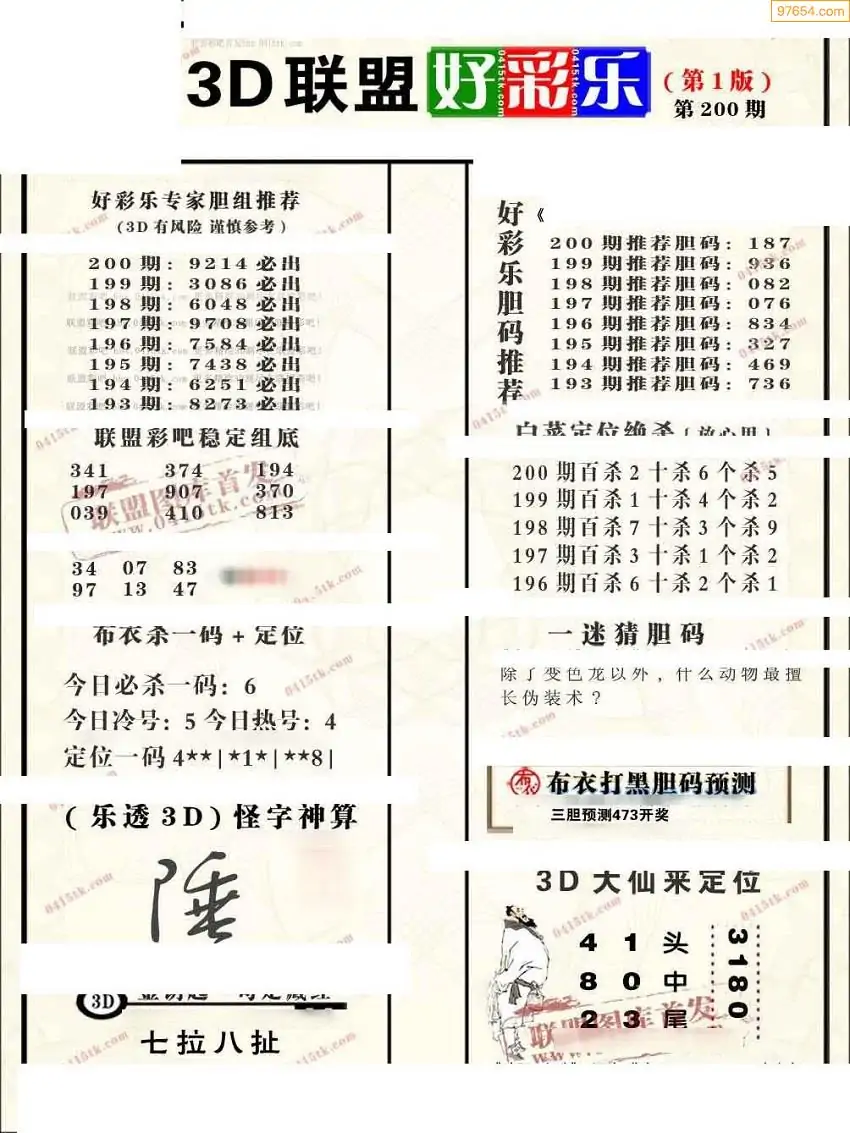 97654.com
3D联盟好彩乐(第1版)
第200期
好彩乐专家胆组推荐
(3D有风险 谨慎参考)
200期: 9214必出
199期: 3086必出
198期: 6048必出
197期: 9708必出
196期: 7584必出
195期: 7438必出
194期: 6251必出
193期: 8273必出
联盟彩吧稳定组底
341 374 194
197 907 370
039 410 813
34 07 83
97 13 47
布衣杀一码+定位
今日必杀一码: 6
今日冷号: 5 今日热号: 4
定位一码4**|*1*|**8|
(乐透3D)怪字神算
陲
3D
七拉八扯
好彩乐胆码推荐
《
200期推荐胆码: 187
199期推荐胆码: 936
198期推荐胆码: 082
197期推荐胆码: 076
196期推荐胆码: 834
195期推荐胆码: 327
194期推荐胆码: 469
193期推荐胆码: 736
白菜定位绝杀[放心用]
200期百杀2十杀6个杀5
199期百杀1十杀4个杀2
198期百杀7十杀3个杀9
197期百杀3十杀1个杀2
196期百杀6十杀2个杀1
一迷猜胆码
除了变色龙以外, 什么动物最擅
长伪装术?
布衣打黑胆码预测
三胆预测473开奖
3D大仙来定位
4 1 头
8 0 中
2 3 尾
3180
联盟图库首发
www.0415tk.com
联盟图库首发
0415tk.com